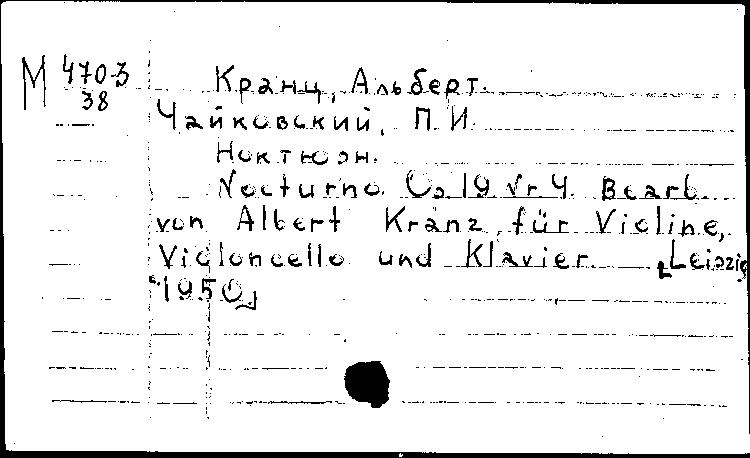 М 470-3
38
Кранц, Альберт.
Чайковский, П.И.
Ноктюрн.
Nocturno. Op 19 Nr 4. Bearb.
von Albert Kranz für Violine,
Violoncello und Klavier. [Leipzig
1950.]